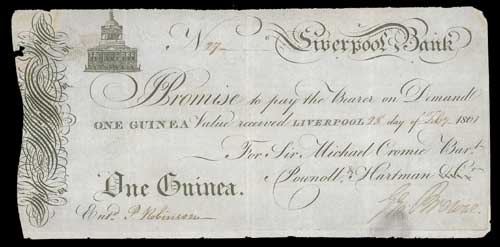 No 27 Liverpool Bank
I Promise to pay the Bearer on Demand
ONE GUINEA Value received LIVERPOOL 28 day of Feby 1801
For Sir Michael Cromie Bart.
Pownoll & Hartman
One Guinea.
Entd. P Robinson
Browne